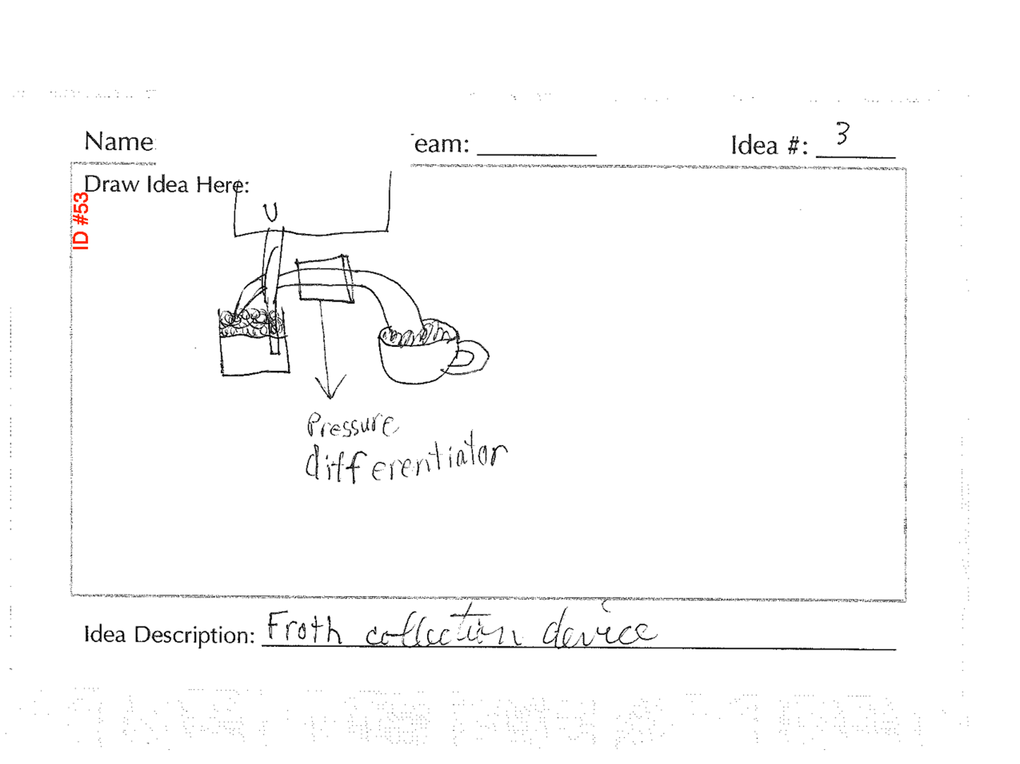 Name:
eam:
Idea #: 3
Draw Idea Here:
ID #53
U
Pressure
differentiator
Idea Description: Froth collection device